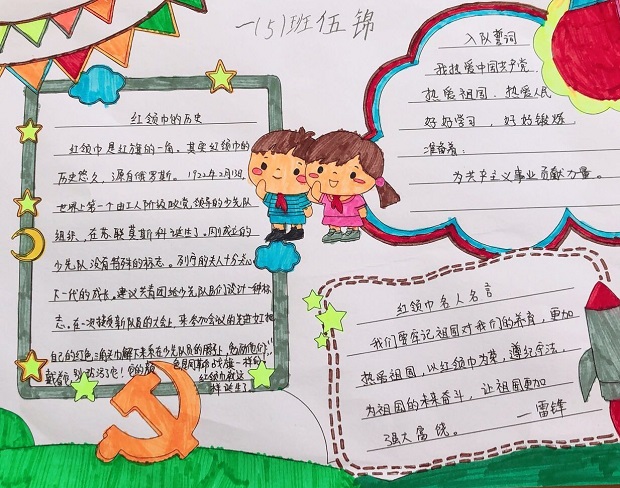 一(5)班 伍锦
红领巾的历史
红领巾是红旗的一角，其实红领巾的
历史悠久，源自俄罗斯。1922年2月13日，
世界上第一个由工人阶级政党领导的少先队
组织，在苏联莫斯科诞生了。刚成立的
少先队没有特殊的标志。列宁的夫人十分关心
下一代的成长。建议共青团给少先队员们设计一种标
志。在一次接收新队员的大会上，来参加会议的先进女工把
自己的红色三角头巾解下来系在少先队员的脖子上，勉励他们
戴着 别玷污了它！它的颜色是同革命战旗一样的
红领巾就这
样诞生了
入队誓词
我热爱中国共产党，
热爱祖国，热爱人民
好好学习，好好锻炼，
准备着：
为共产主义事业贡献力量。
红领巾名人名言
我们要牢记祖国对我们的养育，更加
热爱祖国，以红领巾为荣，遵纪守法，
为祖国的未来奋斗，让祖国更加
强大富饶。 —雷锋